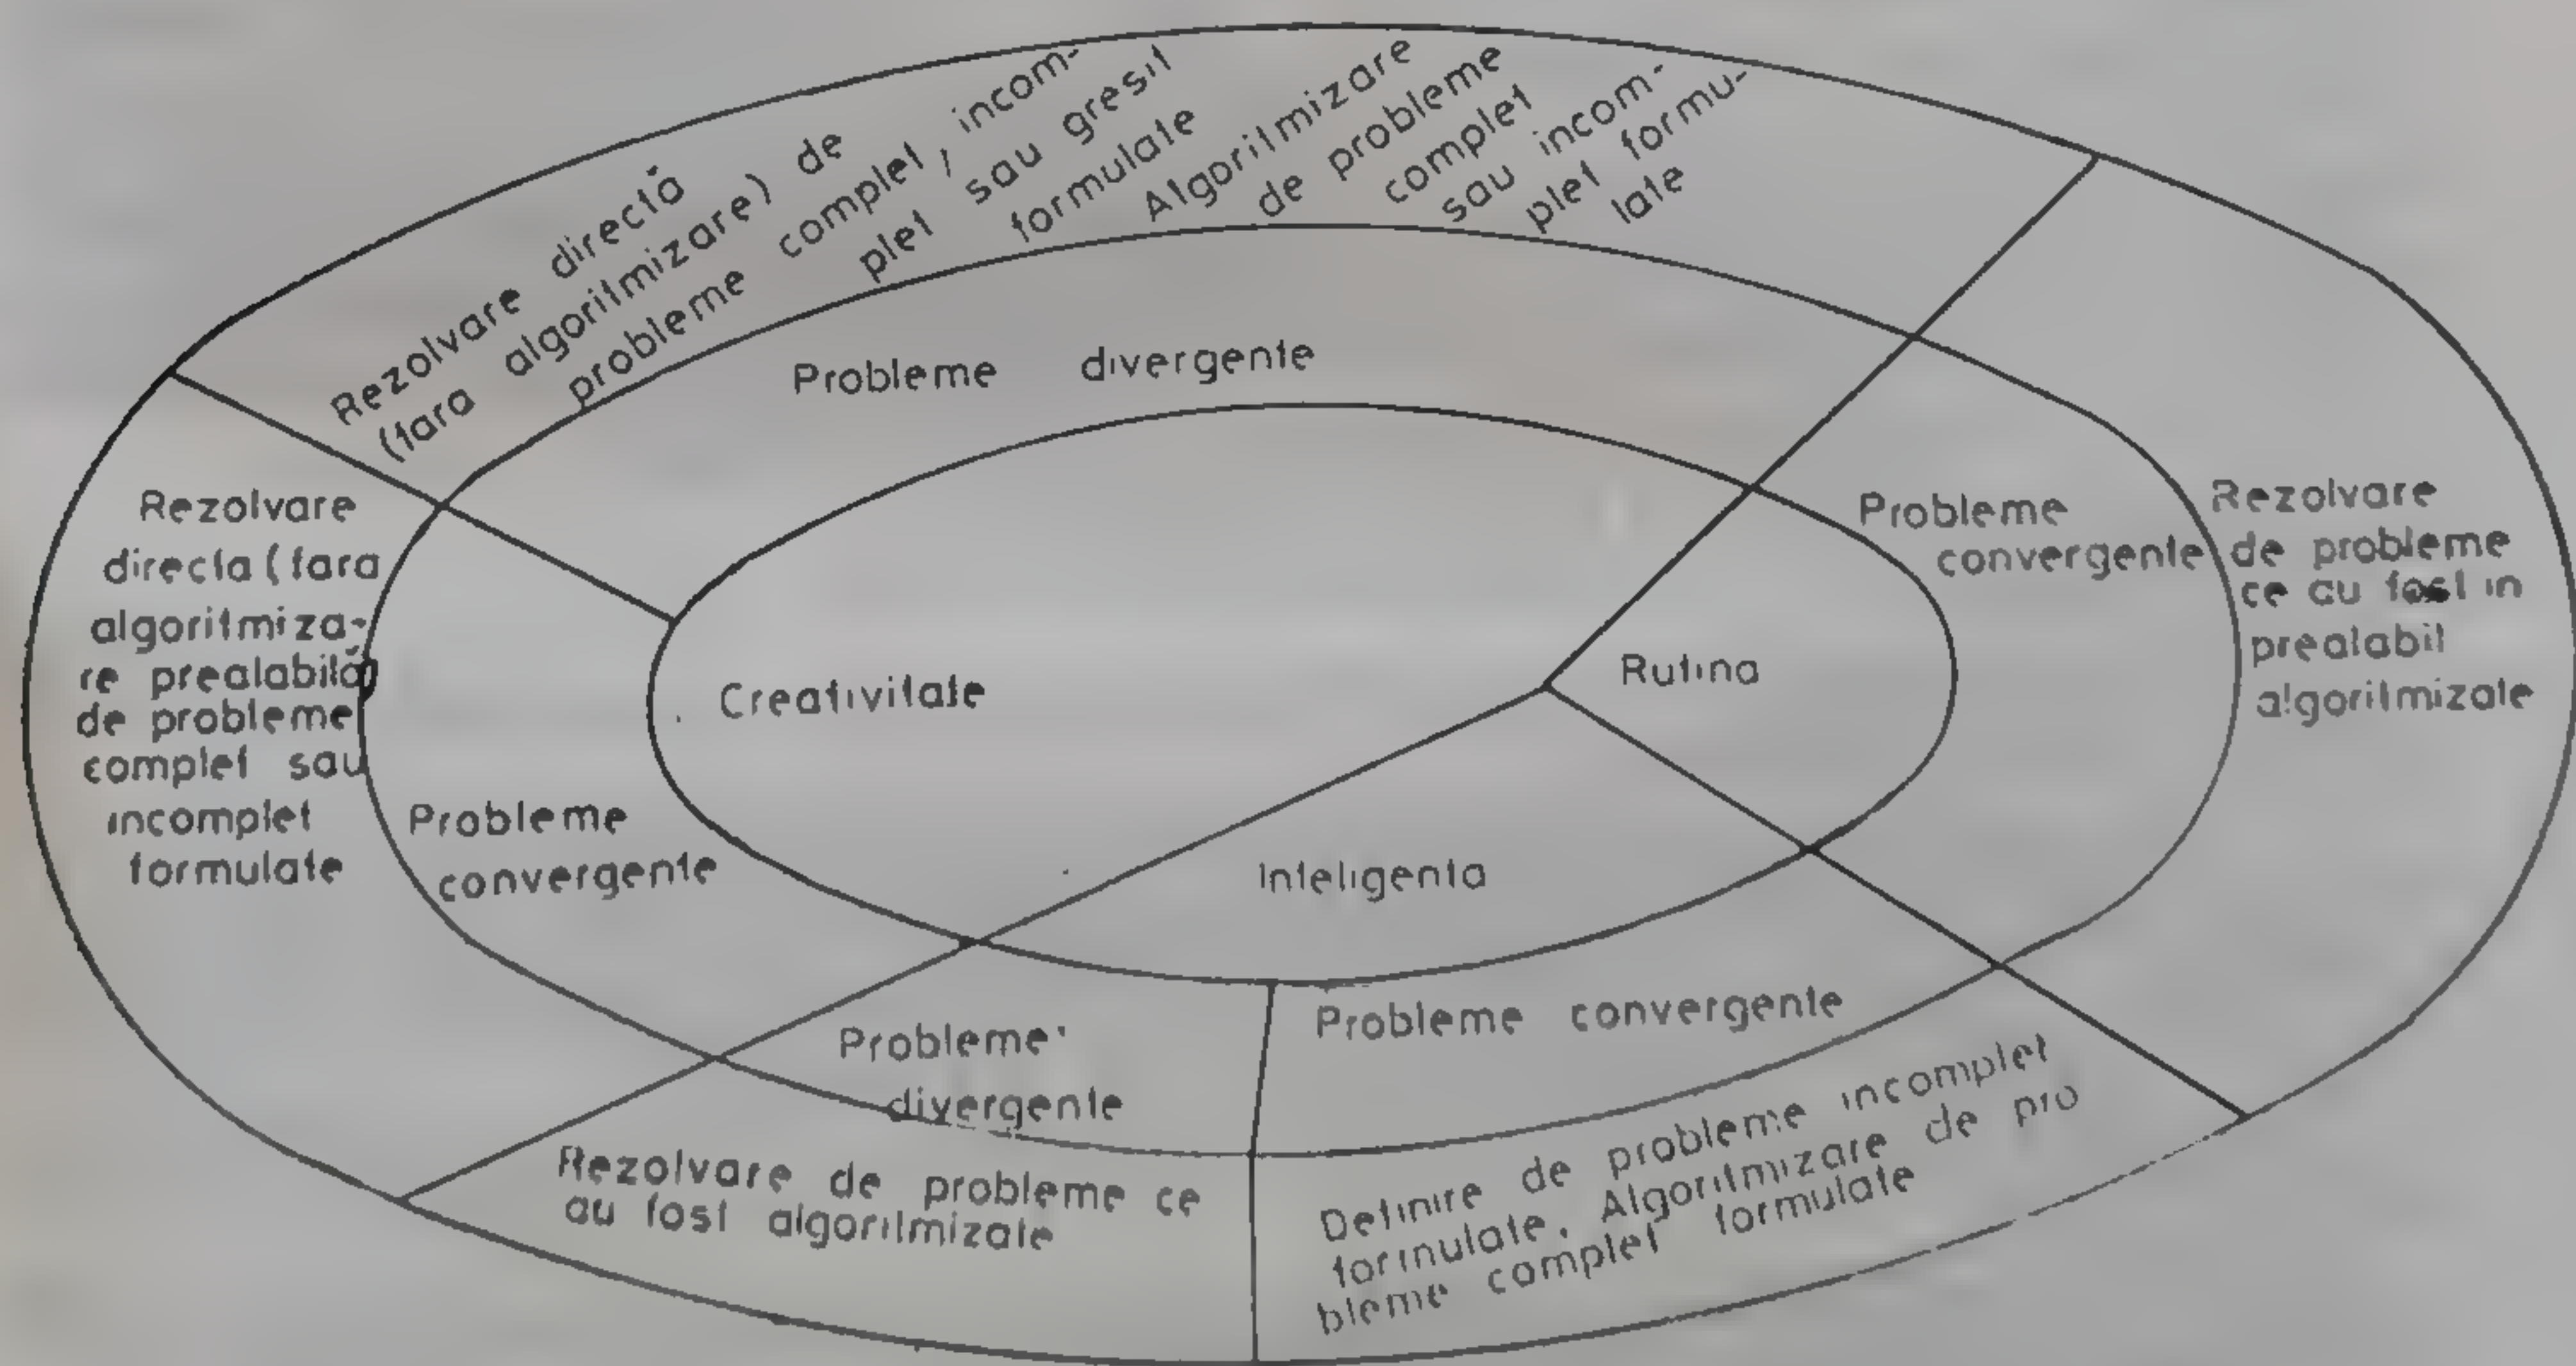 Rezolvare directă
(fara algoritmizare) de
probleme complet, incom-
plet sau gresit
formulate
Algoritmizare
de probleme
complet
sau incom-
plet formu-
late
Probleme divergente
Rezolvare
directa (fara
algoritmiza-
re prealabilă)
de probleme
complet sau
incomplet
formulate
Probleme
convergente
Creativitate
Rutina
Inteligenta
Probleme
convergente
Rezolvare
de probleme
ce au fost in
prealabil
algoritmizate
Probleme
divergente
Probleme convergente
Rezolvare de probleme ce
au fost algoritmizate
Definire de probleme incomplet
formulate. Algoritmizare de pro
bleme complet formulate